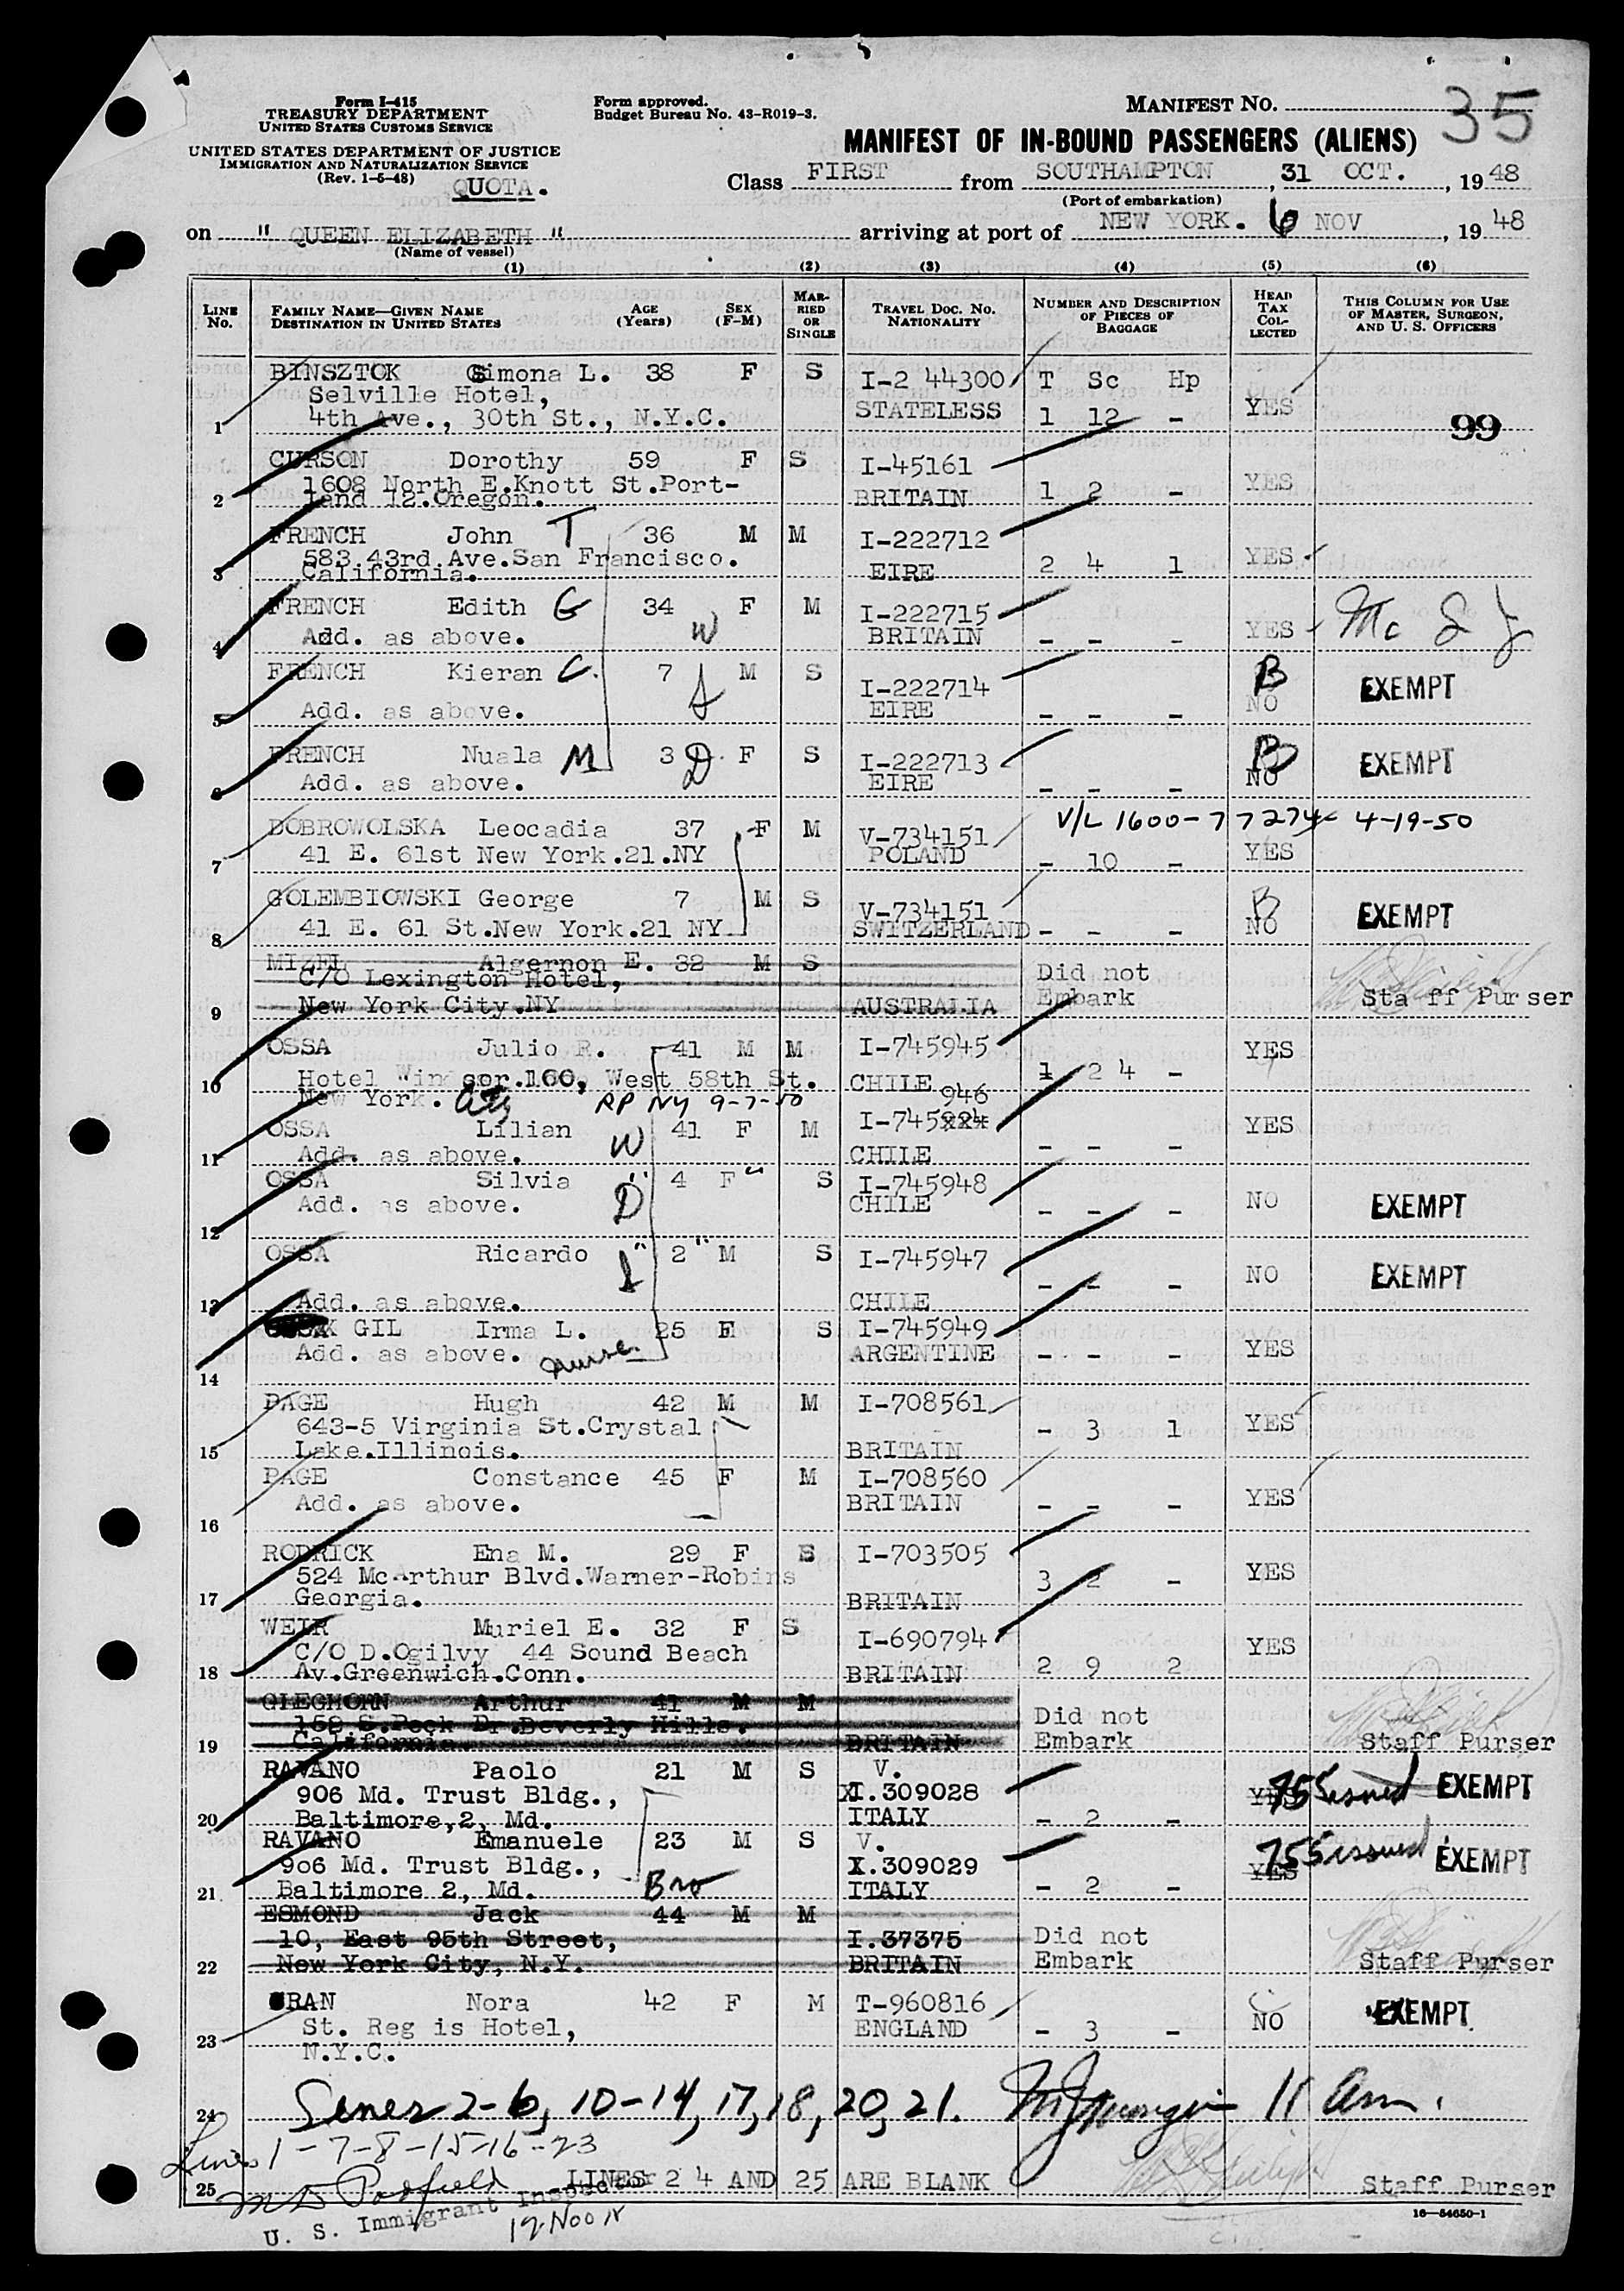 Form I-415
TREASURY DEPARTMENT
UNITED STATES CUSTOMS SERVICE
UNITED STATES DEPARTMENT OF JUSTICE
IMMIGRATION AND NATURALIZATION SERVICE
(Rev. 1-5-48)
QUOTA.
Form approved.
Budget Bureau No. 43-R019-3.
MANIFEST NO. 35
MANIFEST OF IN-BOUND PASSENGERS (ALIENS)
Class FIRST from SOUTHAMPTON, 31 OCT., 1948
(Port of embarkation)
on " QUEEN ELIZABETH " arriving at port of NEW YORK. 6 NOV, 1948
(Name of vessel)
(1) (2) (3) (4) (5) (6)
LINE No. FAMILY NAME—GIVEN NAME DESTINATION IN UNITED STATES AGE (Years) SEX (F-M) MARRIED OR SINGLE TRAVEL DOC. NO. NATIONALITY NUMBER AND DESCRIPTION OF PIECES OF BAGGAGE HEAD TAX COLLECTED THIS COLUMN FOR USE OF MASTER, SURGEON, AND U. S. OFFICERS
BINSZTOK Simona L. 38 F S I-2 44300 T Sc Hp
Selville Hotel, STATELESS 1 12 - YES
1 4th Ave., 30th St., N.Y.C. 99
CURSON Dorothy 59 F S I-45161
1608 North E.Knott St.Port- BRITAIN 1 2 - YES
2 land 12.Oregon.
FRENCH John T 36 M M I-222712
583 43rd Ave.San Francisco. EIRE 2 4 1 YES
3 California.
FRENCH Edith G 34 F M I-222715
4 Add. as above. W BRITAIN - - - YES Mc
FRENCH Kieran C. 7 M S I-222714 B EXEMPT
5 Add. as above. EIRE - - - NO
FRENCH Nuala M 3 D F S I-222713 B EXEMPT
6 Add. as above. EIRE - - - NO
DOBROWOLSKA Leocadia 37 F M V-734151 V/L 1600-77274 4-19-50
7 41 E. 61st New York.21.NY POLAND - 10 - YES
GOLEMBIOWSKI George 7 M S V-734151 B EXEMPT
8 41 E. 61 St.New York.21 NY. SWITZERLAND - - - NO
MIZEL Algernon E. 32 M S
C/O Lexington Hotel, Did not
9 New York City.NY AUSTRALIA Embark Staff Purser
OSSA Julio R. 41 M M I-745945 YES
10 Hotel Windsor.160, West 58th St. CHILE 1 24 -
New York. City RP NY 9-7-50 946
OSSA Lilian 41 F M I-745xxx YES
11 Add. as above. W CHILE - - -
OSSA Silvia " 4 F " S I-745948 NO
12 Add. as above. D CHILE - - - EXEMPT
OSSA Ricardo " 2 " M S I-745947 NO
13 Add. as above. CHILE - - - EXEMPT
GIL Irma L. 25 F S I-745949
14 Add. as above. nurse. ARGENTINE - - - YES
PAGE Hugh 42 M M I-708561
643-5 Virginia St.Crystal - 3 1 YES
15 Lake.Illinois. BRITAIN
PAGE Constance 45 F M I-708560
16 Add. as above. BRITAIN - - - YES
RODRICK Ena M. 29 F S I-703505
524 McArthur Blvd.Warner-Robins 3 2 - YES
17 Georgia. BRITAIN
WEIR Muriel E. 32 F S I-690794
C/O D.Ogilvy 44 Sound Beach YES
18 Av.Greenwich.Conn. BRITAIN 2 9 2
GLEGHORN Arthur 41 M M
158 S.Peck Dr.Beverly Hills. Did not
19 California. BRITAIN Embark Staff Purser
RAVANO Paolo 21 M S V.
906 Md. Trust Bldg., XI.309028 YES 755 issued EXEMPT
20 Baltimore,2, Md. ITALY - 2 -
RAVANO Emanuele 23 M S V.
906 Md. Trust Bldg., X.309029 YES 755 issued EXEMPT
21 Baltimore 2, Md. Bro ITALY - 2 -
ESMOND Jack 44 M M
10, East 95th Street, I.37375 Did not
22 New York City, N.Y. BRITAIN Embark Staff Purser
URAN Nora 42 F M T-960816
23 St. Regis Hotel, ENGLAND - 3 - NO EXEMPT
N.Y.C.
24 Lines 2-6, 10-14, 17, 18, 20, 21. 11 am.
Lines 1-7-8-15-16-23
25 LINES 24 AND 25 ARE BLANK Staff Purser
M D Padfield
U. S. Immigrant Inspector
12 Noon
16—54650-1